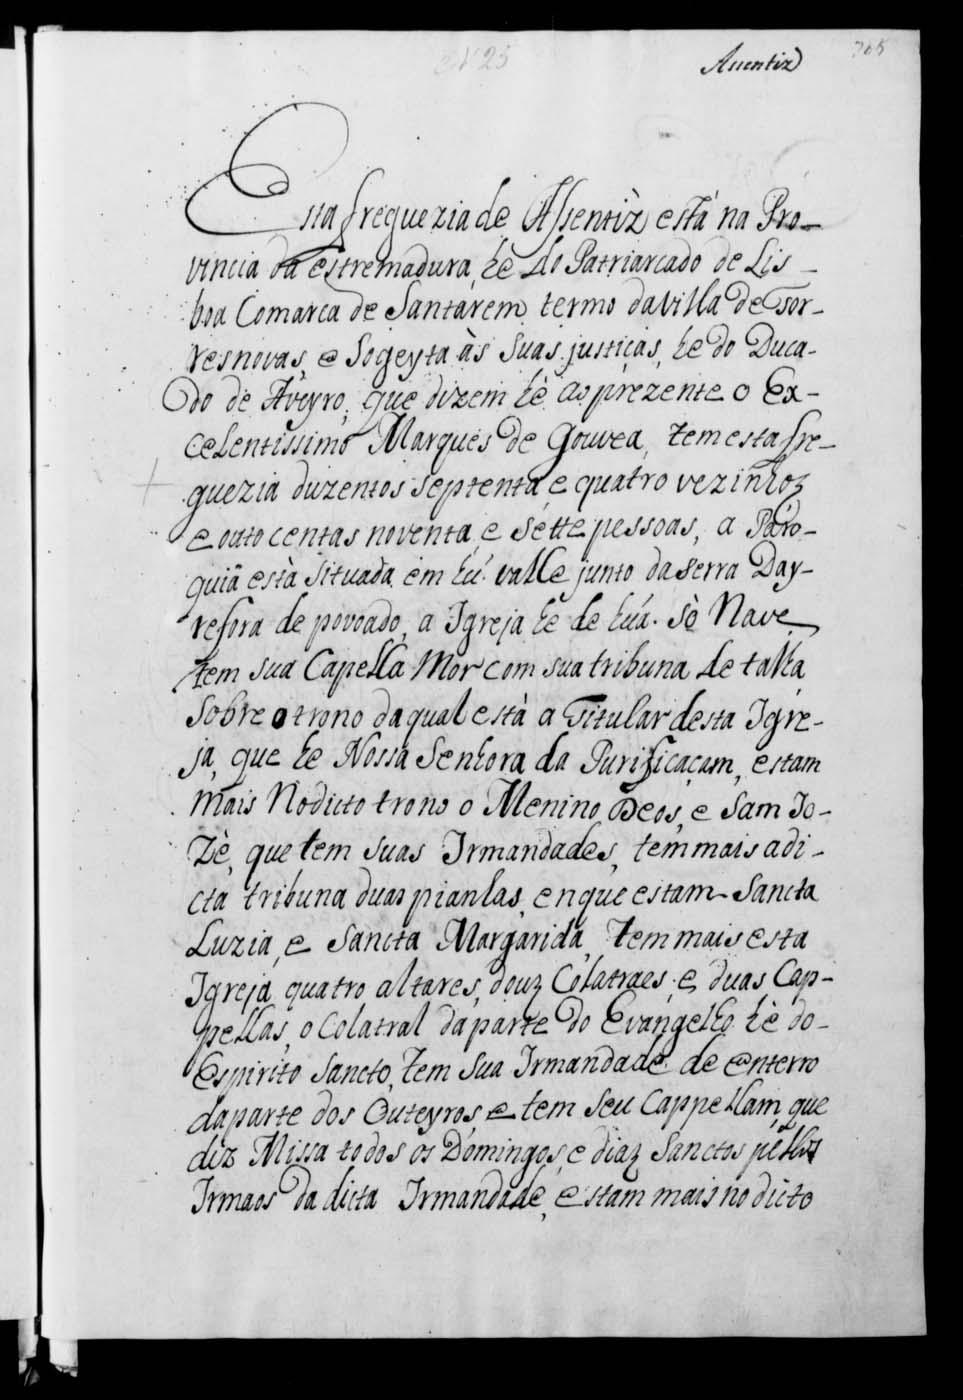 N 25
Assentiz
705
Esta freguezia de Assentiz está na Pro-
vincia da estremadura, hè do Patriarcado de Lis-
boa Comarca de Santarem termo da villa de Tor-
resnovas, e Sogeyta às Suas justiças, he do Duca-
do de Aveyro, que dizem hè ao prezente o Ex-
celentissimo Marques de Gouvea, tem esta fre-
guezia duzentos septenta, e quatro vezinhoz
e outo centas noventa, e sétte pessoas, a Paro-
quiã està situada em hu' valle junto da serra Day-
re fora de povoado, a Igreja hè de huá sò Nave
tem sua Capella Mor com sua tribuna de talha
Sobre o trono da qual està a Titular desta Igre-
ja, que he Nossa Senhora da Purificaçam, estam
mais No dicto trono o Menino Deos, e Sam Jo-
zè, que tem suas Irmandades, tem mais a di-
cta tribuna duas pianhas, en que estam Sancta
Luzia, e Sancta Margarida, tem mais esta
Igreja quatro altares, douz Colatraes, e duas Cap-
pellas, o Colatral da parte do Evangelho hè do
Espirito Sancto, tem sua Irmandade de enterro
da parte dos Outeyros, e tem seu Cappellam, que
diz Missa todos os Domingos, e diaz Sanctos pellos
Irmaos da dicta Irmandade, estam mais no dicto